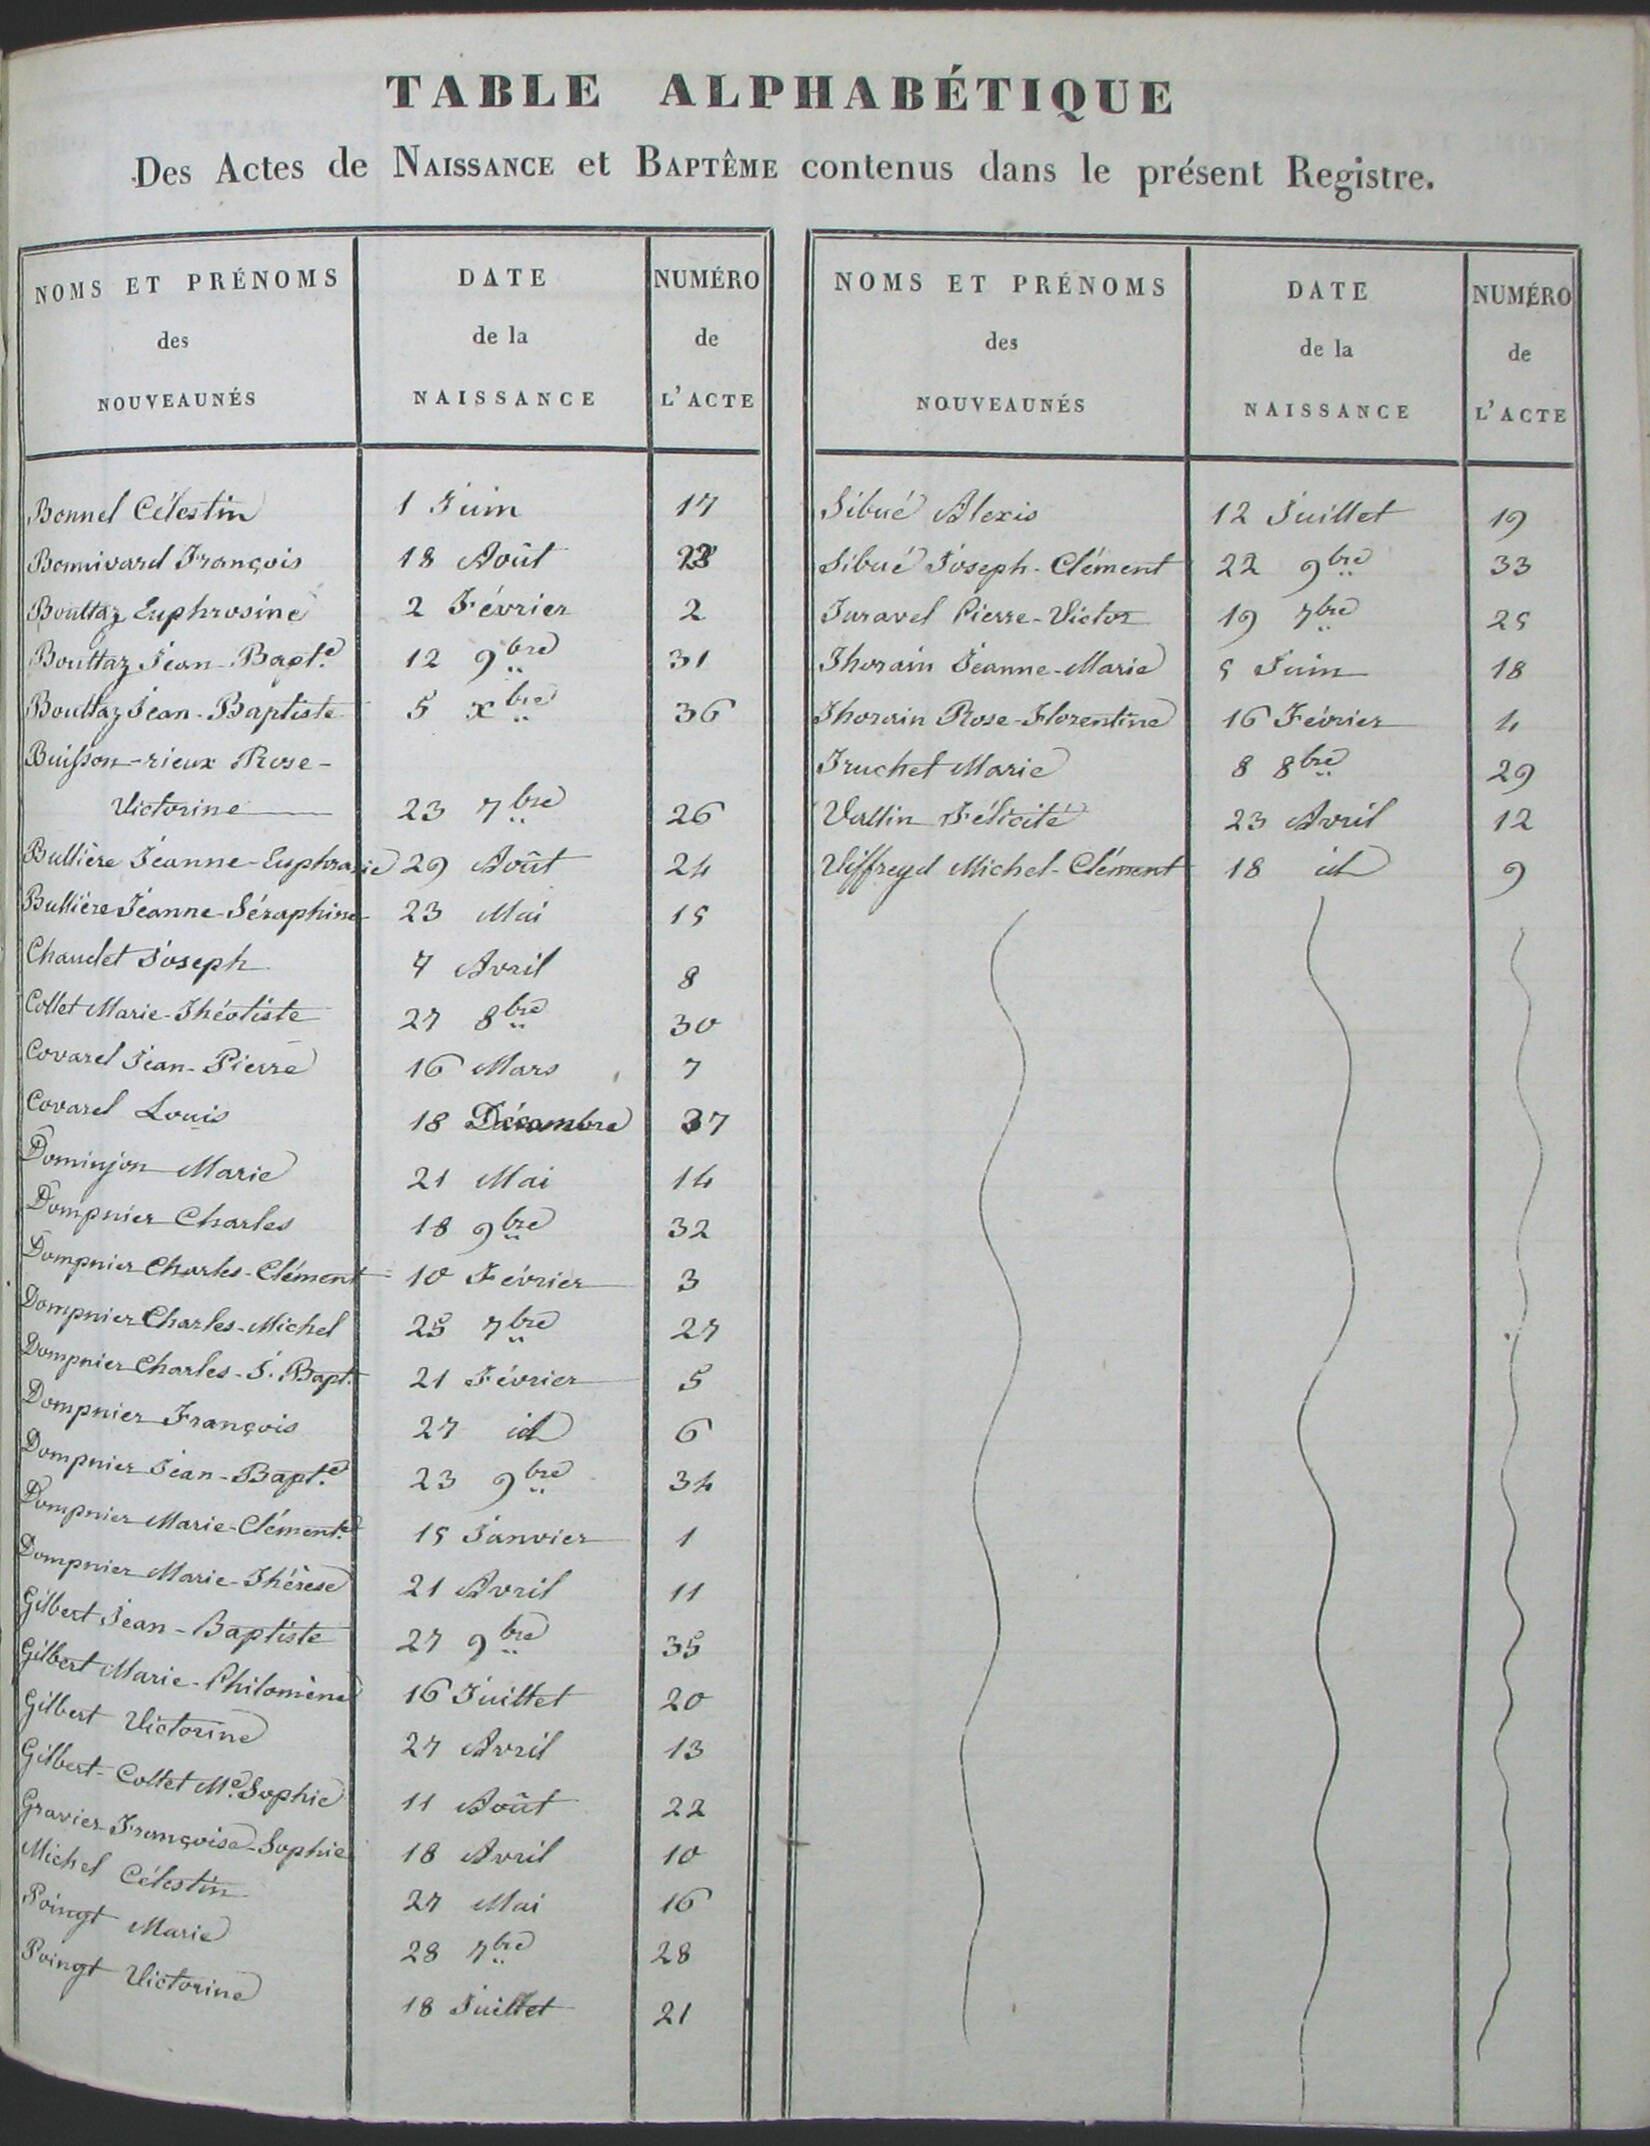 TABLE ALPHABÉTIQUE
Des Actes de NAISSANCE et BAPTÊME contenus dans le présent Registre.
NOMS ET PRÉNOMS
des
NOUVEAUNÉS
DATE
de la
NAISSANCE
NUMÉRO
de
L'ACTE
Bonnel Célestin 1 Juin 17
Bonnivard François 18 Août 23
Bouttaz Euphrosine 2 Février 2
Bouttaz Jean-Bapt.e 12 9bre 31
Bouttaz Jean-Baptiste 5 xbre 36
Buisson-rieux Rose-
Victorine 23 7bre 26
Bullière Jeanne-Euphrasie 29 Août 24
Bullière Jeanne-Séraphine 23 Mai 15
Chaudet Joseph 7 Avril 8
Collet Marie-Théotiste 27 8bre 30
Covarel Jean-Pierre 16 Mars 7
Covarel Louis 18 Décembre 37
Dominjon Marie 21 Mai 14
Dompnier Charles 18 9bre 32
Dompnier Charles-Clément 10 Février 3
Dompnier Charles-Michel 25 7bre 27
Dompnier Charles-J. Bapt. 21 Février 5
Dompnier François 27 id 6
Dompnier Jean-Bapt.e 23 9bre 34
Dompnier Marie-Clément.e 15 Janvier 1
Dompnier Marie-Thérèse 21 Avril 11
Gilbert Jean-Baptiste 27 9bre 35
Gilbert Marie-Philomène 16 Juillet 20
Gilbert Victorine 27 Avril 13
Gilbert-Collet M.e Sophie 11 Août 22
Gravier Françoise-Sophie 18 Avril 10
Michel Célestin 27 Mai 16
Poingt Marie 28 7bre 28
Poingt Victorine 18 Juillet 21
NOMS ET PRÉNOMS
des
NOUVEAUNÉS
DATE
de la
NAISSANCE
NUMÉRO
de
L'ACTE
Sibué Alexis 12 Juillet 19
Sibué Joseph-Clément 22 9bre 33
Taravel Pierre-Victor 19 7bre 25
Thorain Jeanne-Marie 5 Juin 18
Thorain Rose-Florentine 16 Février 4
Truchet Marie 8 8bre 29
Vallin Félicité 23 Avril 12
Viffreyd Michel-Clément 18 id 9